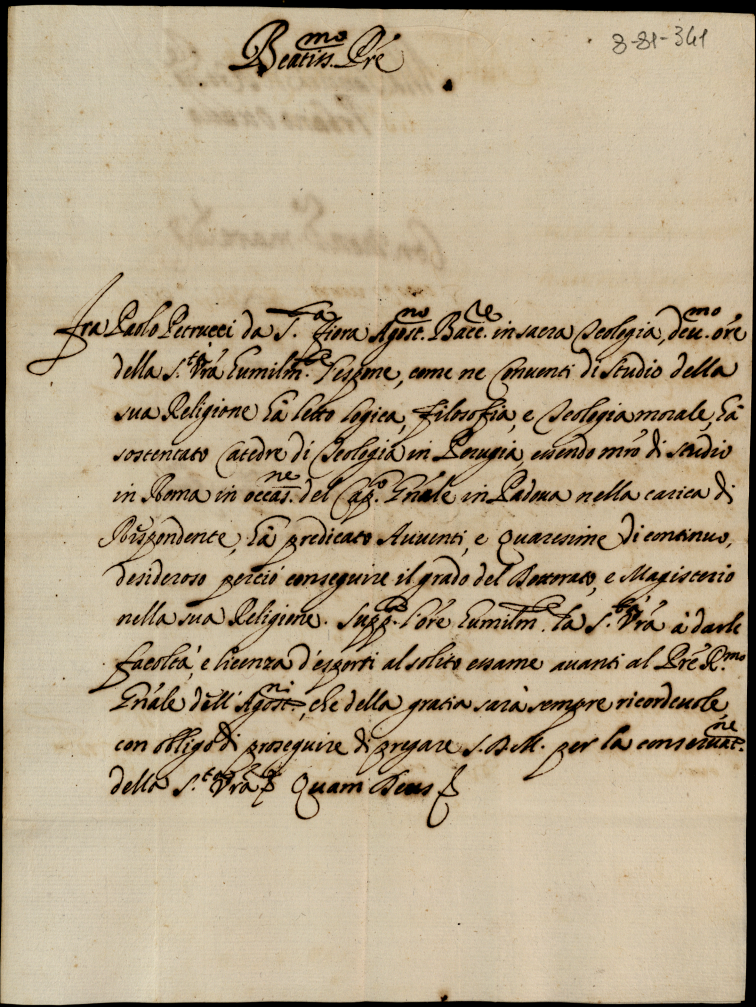 8-81-341
Beatiss.mo Pre
Fra Paolo Petrucci da S.ta Fiora Agost.no Bacc.re in sacra Teologia, deu.mo ore
della S.tà Vra humilm.te espone, come ne Conuenti di studio della
sua Religione hà letto logica, filosofia, e Teologia morale, hà
sostentato Catedre di Teologia in Perugia, essendo mro di studio
in Roma in occas.ne del Cap.o Gnale in Padoua nella carica di
Rispondente, hà predicato Auuenti, e Quaresime di continuo,
desideroso perciò conseguire il grado del Dottorato, e Magisterio
nella sua Religione. Supp.ca l'ore humilm.te la S.tà Vra à darle
facoltà, e licenza d'esporsi al solito essame auanti al Pre R.mo
Gnale dell' Agost.ni, che della gratia sarà sempre ricordeuole
con obligo di proseguire di pregare S.D.M. per la conseruat.ne
della S.tà Vra Quam Deus